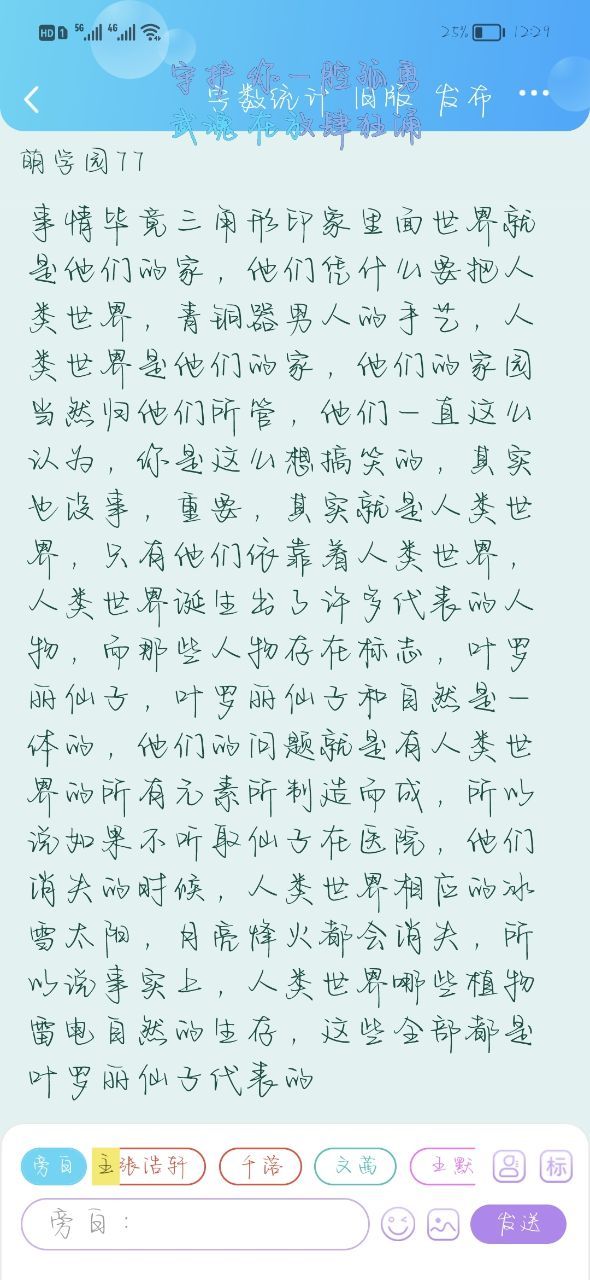 HD 1 5G 4G 25% 12:29
守护你一腔孤勇
字数统计 旧版 发布
武魂在放肆狂涌
萌学园77
事情毕竟三角形印象里面世界就
是他们的家，他们凭什么要把人
类世界，青铜器男人的手艺，人
类世界是他们的家，他们的家园
当然归他们所管，他们一直这么
认为，你是这么想搞笑的，其实
也没事，重要，其实就是人类世
界，只有他们依靠着人类世界，
人类世界诞生出了许多代表的人
物，而那些人物存在标志，叶罗
丽仙子，叶罗丽仙子和自然是一
体的，他们的问题就是有人类世
界的所有元素所制造而成，所以
说如果不听取仙子在医院，他们
消失的时候，人类世界相应的冰
雪太阳，月亮烽火都会消失，所
以说事实上，人类世界哪些植物
雷电自然的生存，这些全部都是
叶罗丽仙子代表的
旁白 主张浩轩 千落 文茜 王默 标
旁白： 发送